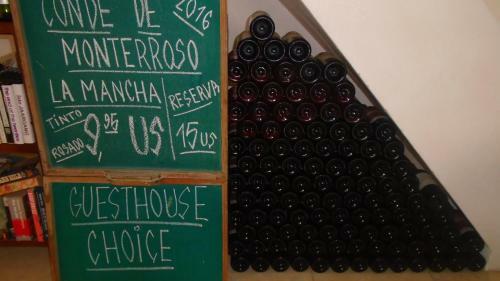 CONDE DE
2016
MONTERROSO
LA MANCHA
TINTO
ROSADO
9,95 US
RESERVA
15 US
GUESTHOUSE
CHOICE